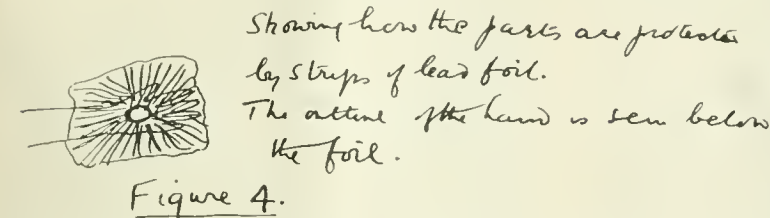 Showing how the parts are protected
by strips of lead foil.
The outline of the hand is seen below
the foil.
Figure 4.